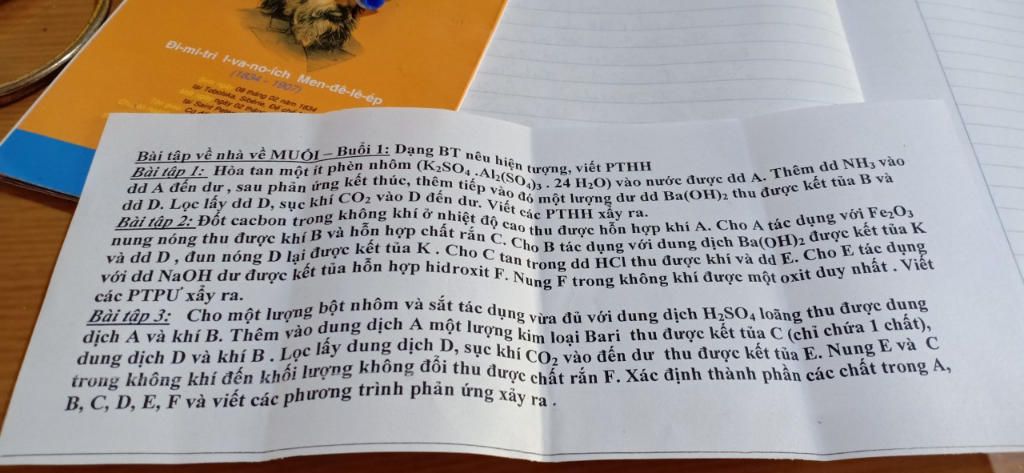 Đi-mi-tri I-va-no-ích Men-đê-lê-ép
(1834 - 1907)
08 tháng 02 năm 1834
tại Tobolska, Sibérie, Đế chế
ngày 02 tháng
tại Sant Peter
Bài tập về nhà về MUỐI – Buổi 1: Dạng BT nêu hiện tượng, viết PTHH
Bài tập 1: Hòa tan một ít phèn nhôm (K₂SO₄ .Al₂(SO₄)₃ . 24 H₂O) vào nước được dd A. Thêm dd NH₃ vào
dd A đến dư , sau phản ứng kết thúc, thêm tiếp vào đó một lượng dư dd Ba(OH)₂ thu được kết tủa B và
dd D. Lọc lấy dd D, sục khí CO₂ vào D đến dư. Viết các PTHH xẩy ra.
Bài tập 2: Đốt cacbon trong không khí ở nhiệt độ cao thu được hỗn hợp khí A. Cho A tác dụng với Fe₂O₃
nung nóng thu được khí B và hỗn hợp chất rắn C. Cho B tác dụng với dung dịch Ba(OH)₂ được kết tủa K
và dd D , đun nóng D lại được kết tủa K . Cho C tan trong dd HCl thu được khí và dd E. Cho E tác dụng
với dd NaOH dư được kết tủa hỗn hợp hidroxit F. Nung F trong không khí được một oxit duy nhất . Viết
các PTPƯ xẩy ra.
Bài tập 3: Cho một lượng bột nhôm và sắt tác dụng vừa đủ với dung dịch H₂SO₄ loãng thu được dung
dịch A và khí B. Thêm vào dung dịch A một lượng kim loại Bari thu được kết tủa C (chỉ chứa 1 chất),
dung dịch D và khí B . Lọc lấy dung dịch D, sục khí CO₂ vào đến dư thu được kết tủa E. Nung E và C
trong không khí đến khối lượng không đổi thu được chất rắn F. Xác định thành phần các chất trong A,
B, C, D, E, F và viết các phương trình phản ứng xảy ra .